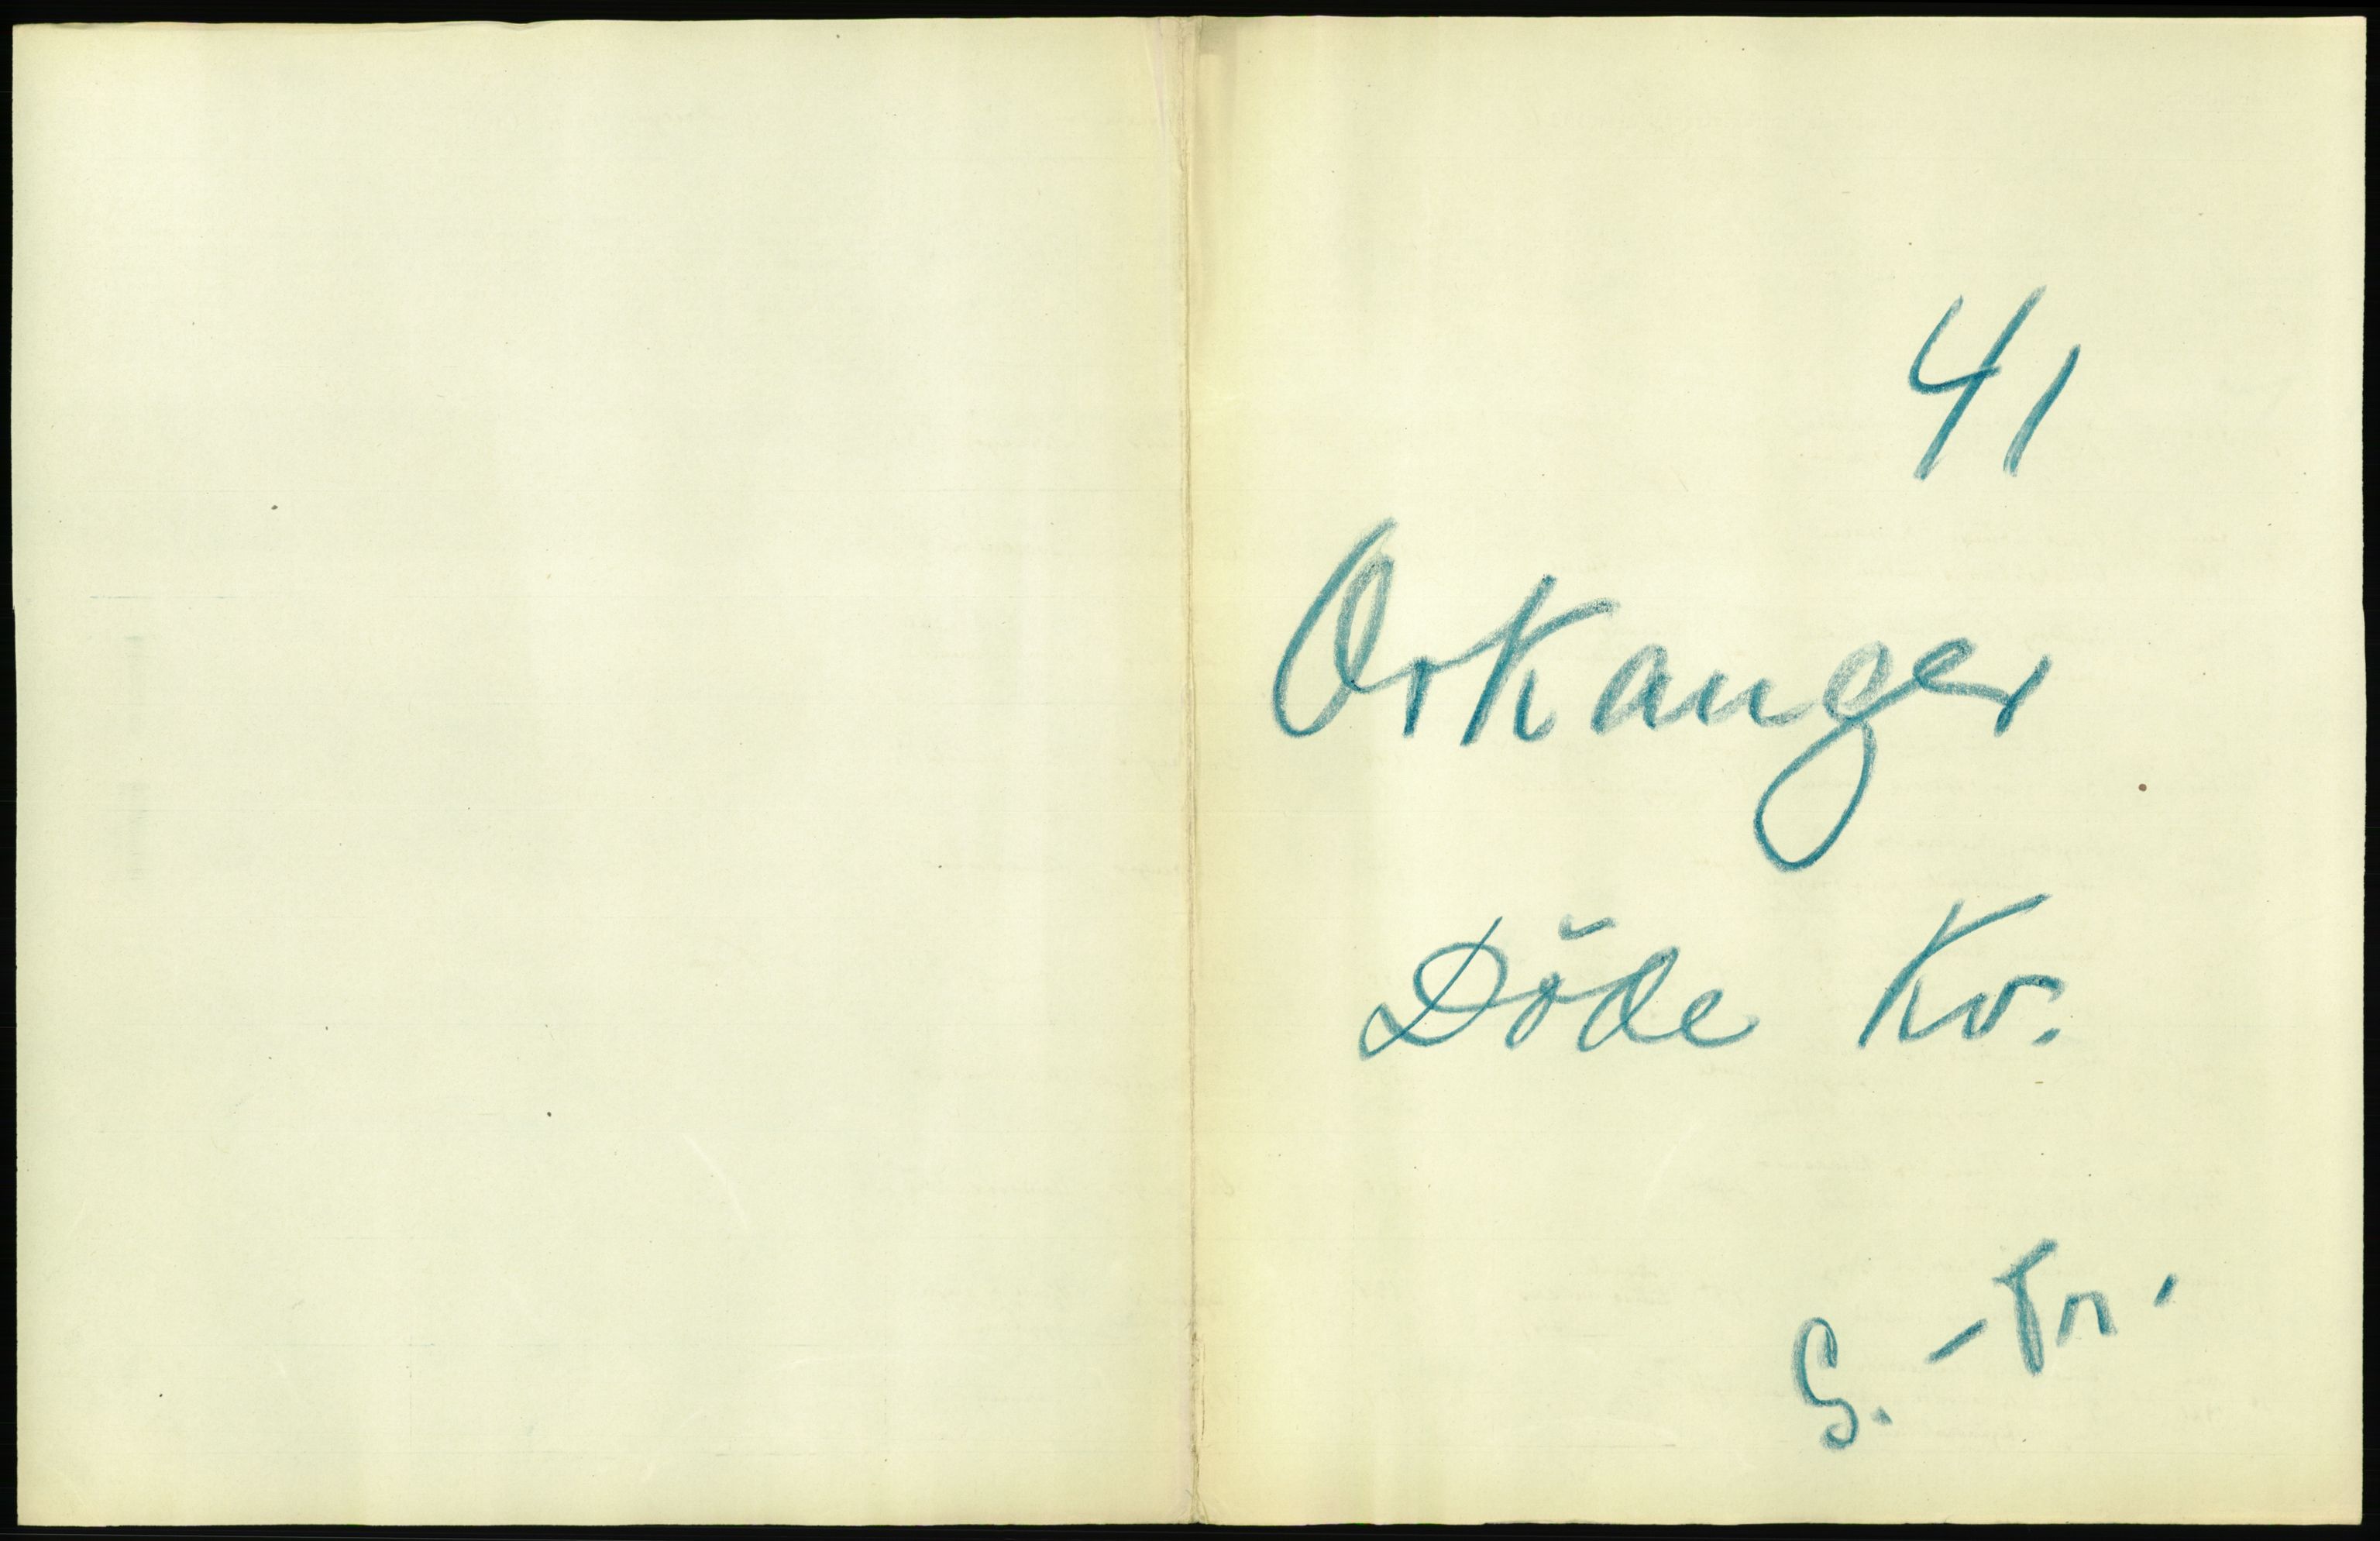 41
Orkanger
Döde Kv.
S.-Tr.